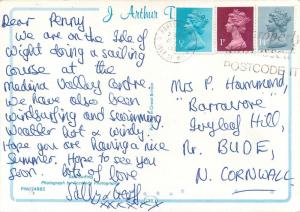 J Arthur
Dear Penny
We are on the Isle of
Wight doing a sailing
course at the
Medina Valley Centre.
We have also been
windsurfing and swimming.
Weather hot & windy.
Hope you are having a nice
Summer. Hope to see you
soon. Lots of love
Sally & Geoff
xxxxxx
Photograph
PIW/24862
1P
POSTCODE
Mrs P. Hammond,
"Barravore
Ivyleaf Hill,
Nr. BUDE,
N. CORNWALL